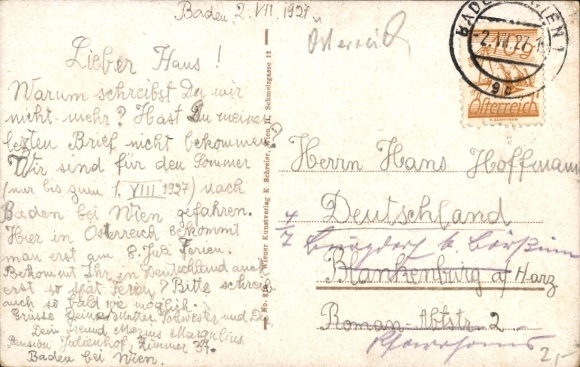 Baden 2. VII. 1927
Österreich
Lieber Hans!
Warum schreibst Du mir
nicht mehr? Hast Du meinen
letzten Brief nicht bekommen?
Wir sind für den Sommer
(nur bis zum 1. VIII 1927) nach
Baden bei Wien gefahren.
Hier in Österreich bekommt
man erst am 8. Juli Ferien.
Bekommt Ihr in Deutschland auch
erst so spät Ferien? Bitte schreib
auch so bald wie möglich.
Grüsse Deine Mutter Schwester und Dich
Dein Freund Marius Margulius
Pension Julienhof, Zimmer 37.
Baden bei Wien.
Wiener Kunstverlag E. Schreier, Wien II, Schmelzgasse 12
BADEN WIEN 1
2.VII.27
9c
10g
Österreich
Herrn Hans Hoffmann
Deutschland
Burgdorf b. Börßum
Blankenburg a/Harz
Roman-Abtstr. 2
2,-